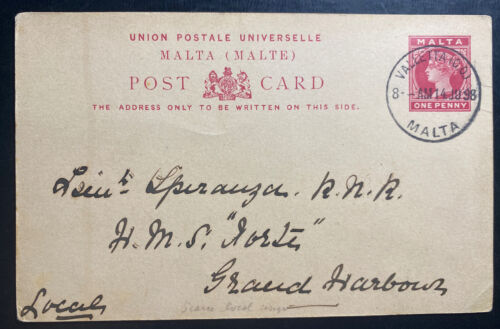 UNION POSTALE UNIVERSELLE
MALTA (MALTE)
POST CARD
THE ADDRESS ONLY TO BE WRITTEN ON THIS SIDE.
MALTA
ONE PENNY
VALLETTA
8- AM 14 JU 98
MALTA
Lieut Speranza. R.N.R.
H.M.S.
Grand Harbour
Local
Scarce local usage